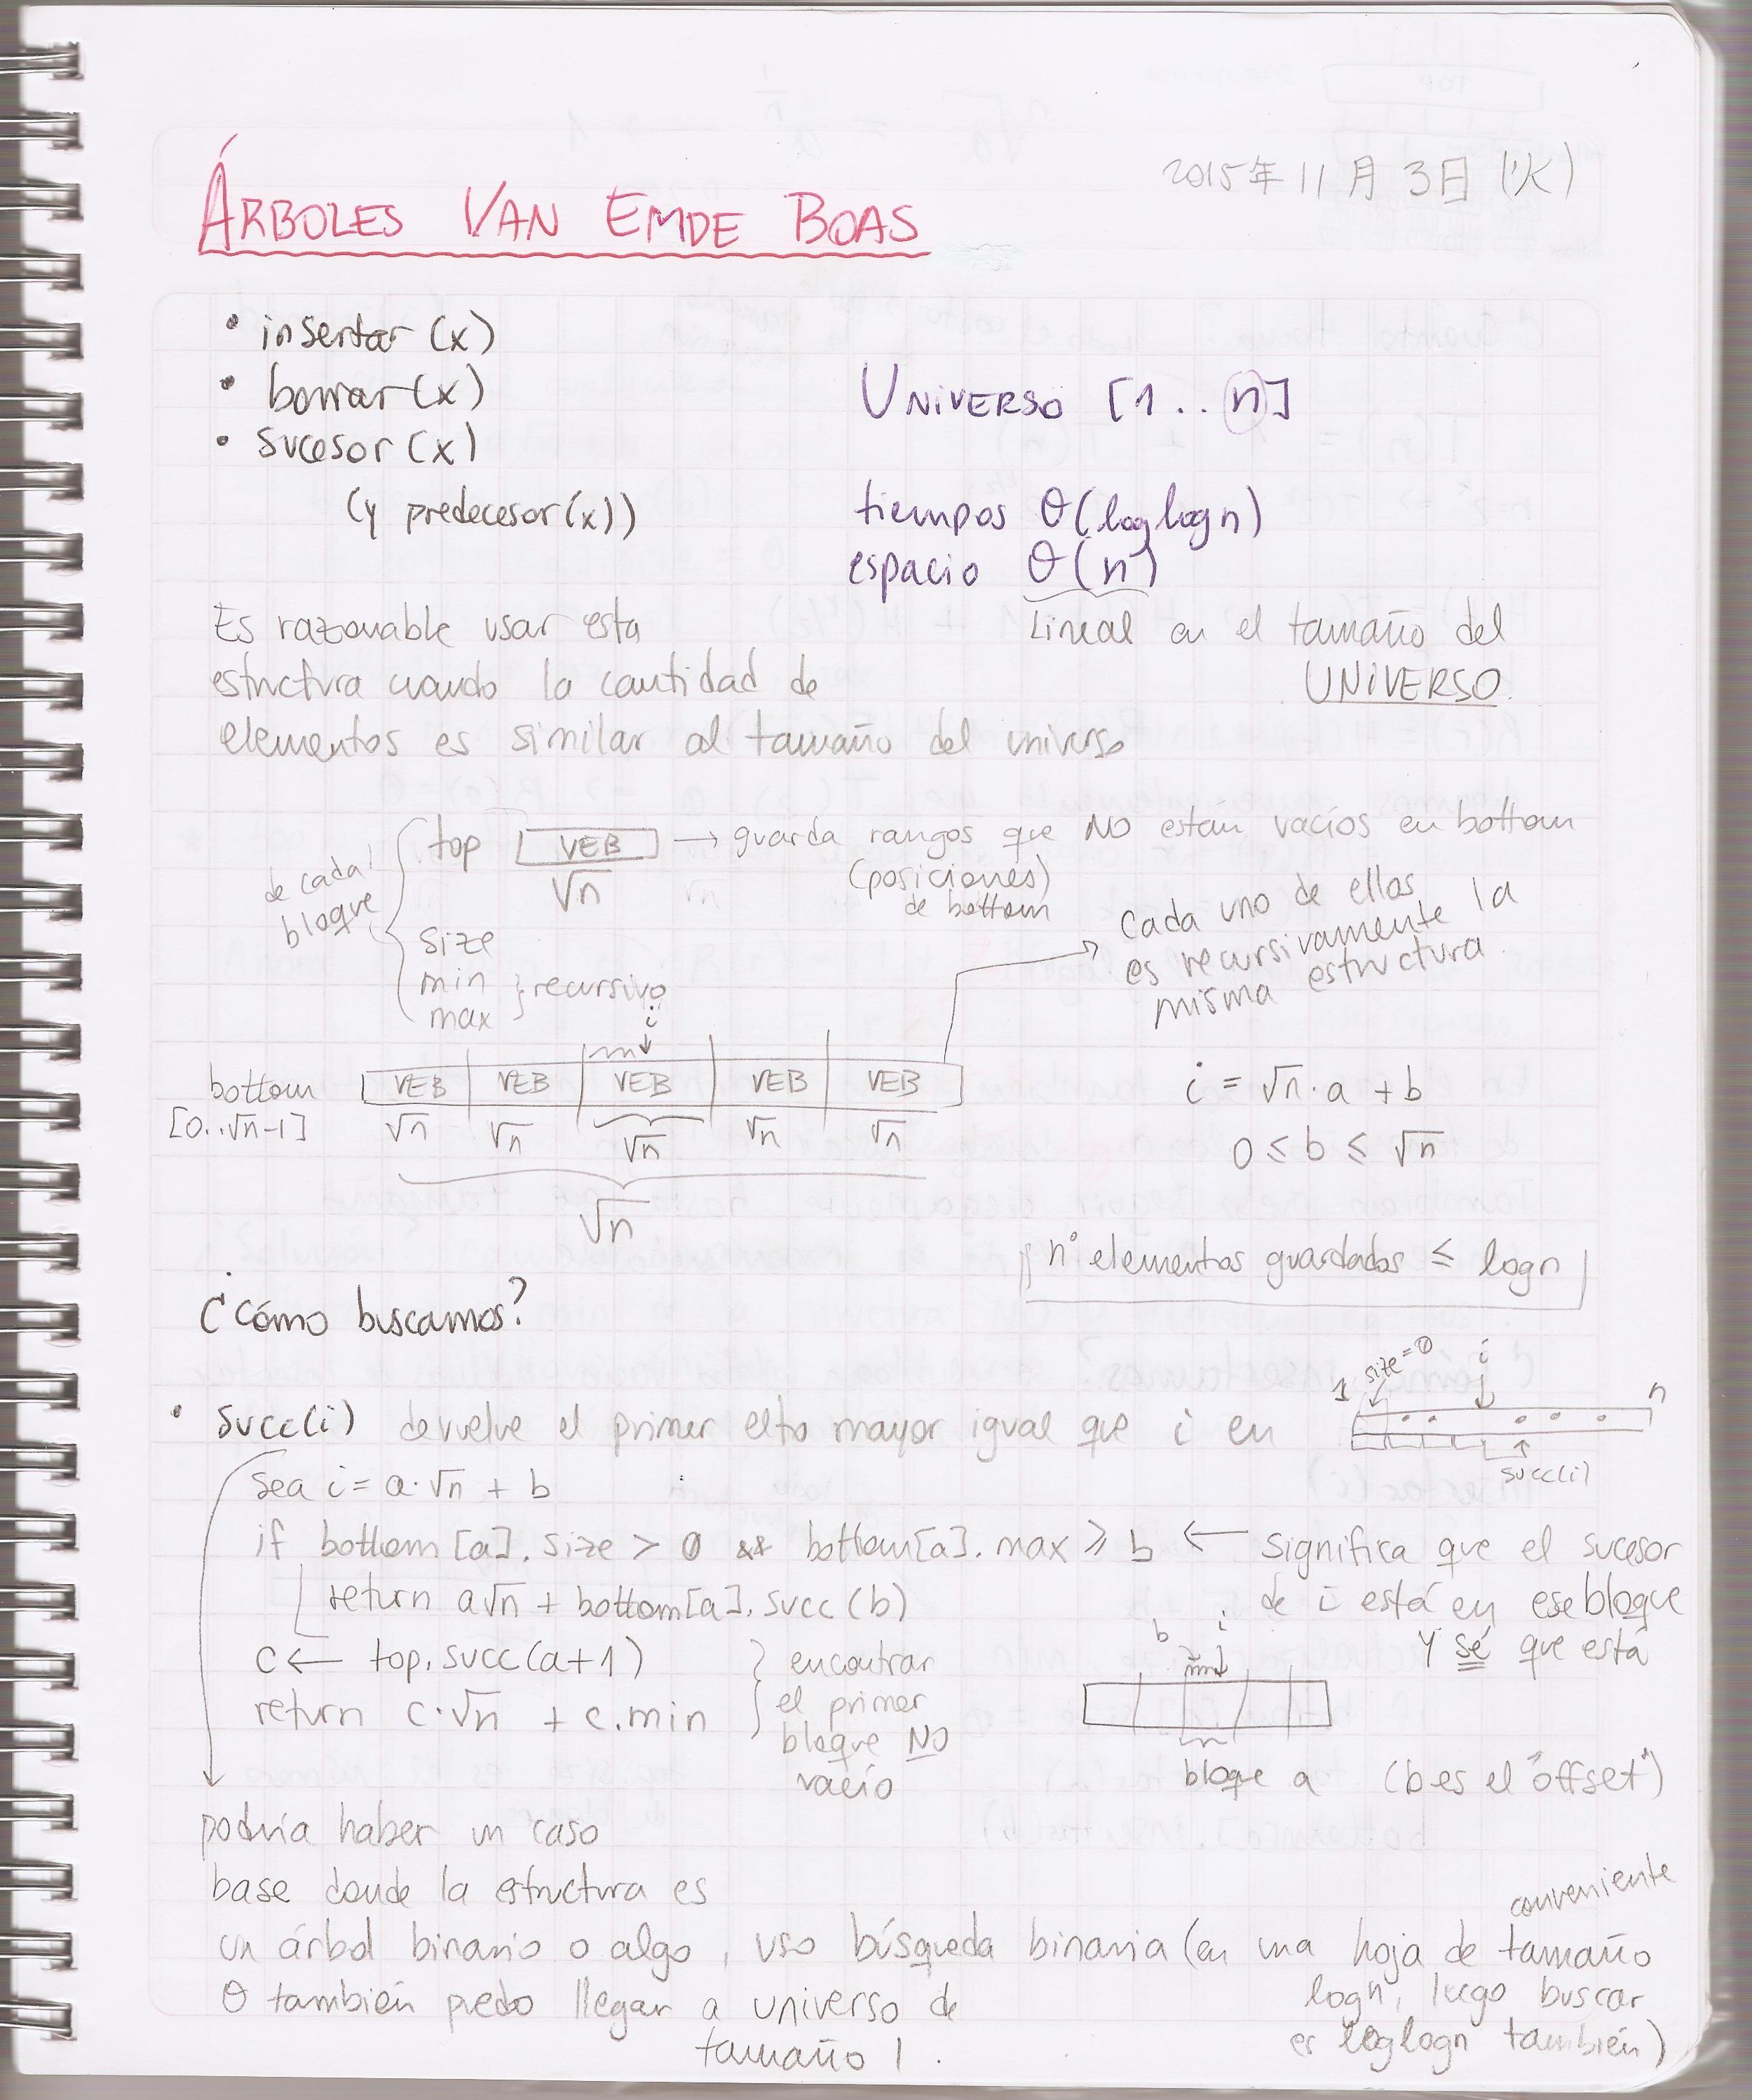 2015年11月3日(火)
ÁRBOLES VAN EMDE BOAS
• insertar (x)
• borrar (x)
• sucesor (x)
(y predecesor(x))
UNIVERSO [1..n]
tiempos Θ(loglogn)
espacio Θ(n)
Lineal en el tamaño del
UNIVERSO.
Es razonable usar esta
estructura cuando la cantidad de
elementos es similar al tamaño del universo
de cada
bloque
top VEB → guarda rangos que NO están vacíos en bottom
√n
(posiciones)
de bottom
size
min
max
} recursivo
Cada uno de ellos
es recursivamente la
misma estructura.
i
bottom
[0..√n-1]
VEB VEB VEB VEB VEB
√n √n √n √n √n
√n
i = √n·a + b
0 ≤ b ≤ √n
n° elementos guardados ≤ logn
¿Cómo buscamos?
• succ(i) devuelve el primer elto mayor igual que i en
1 size=0 i n
succ(i)
sea i = a·√n + b
if bottom[a].size > 0 && bottom[a].max ≥ b ← significa que el sucesor
de i está en ese bloque
y sé que está
return a√n + bottom[a].succ(b)
c ← top.succ(a+1)
return c·√n + c.min
} encontrar
el primer
bloque NO
vacío
b i
bloque a (b es el "offset")
podría haber un caso
base donde la estructura es
un árbol binario o algo, uso búsqueda binaria (en una hoja de tamaño
conveniente
logn, luego buscar
es loglogn también)
O también puedo llegar a universo de
tamaño 1.